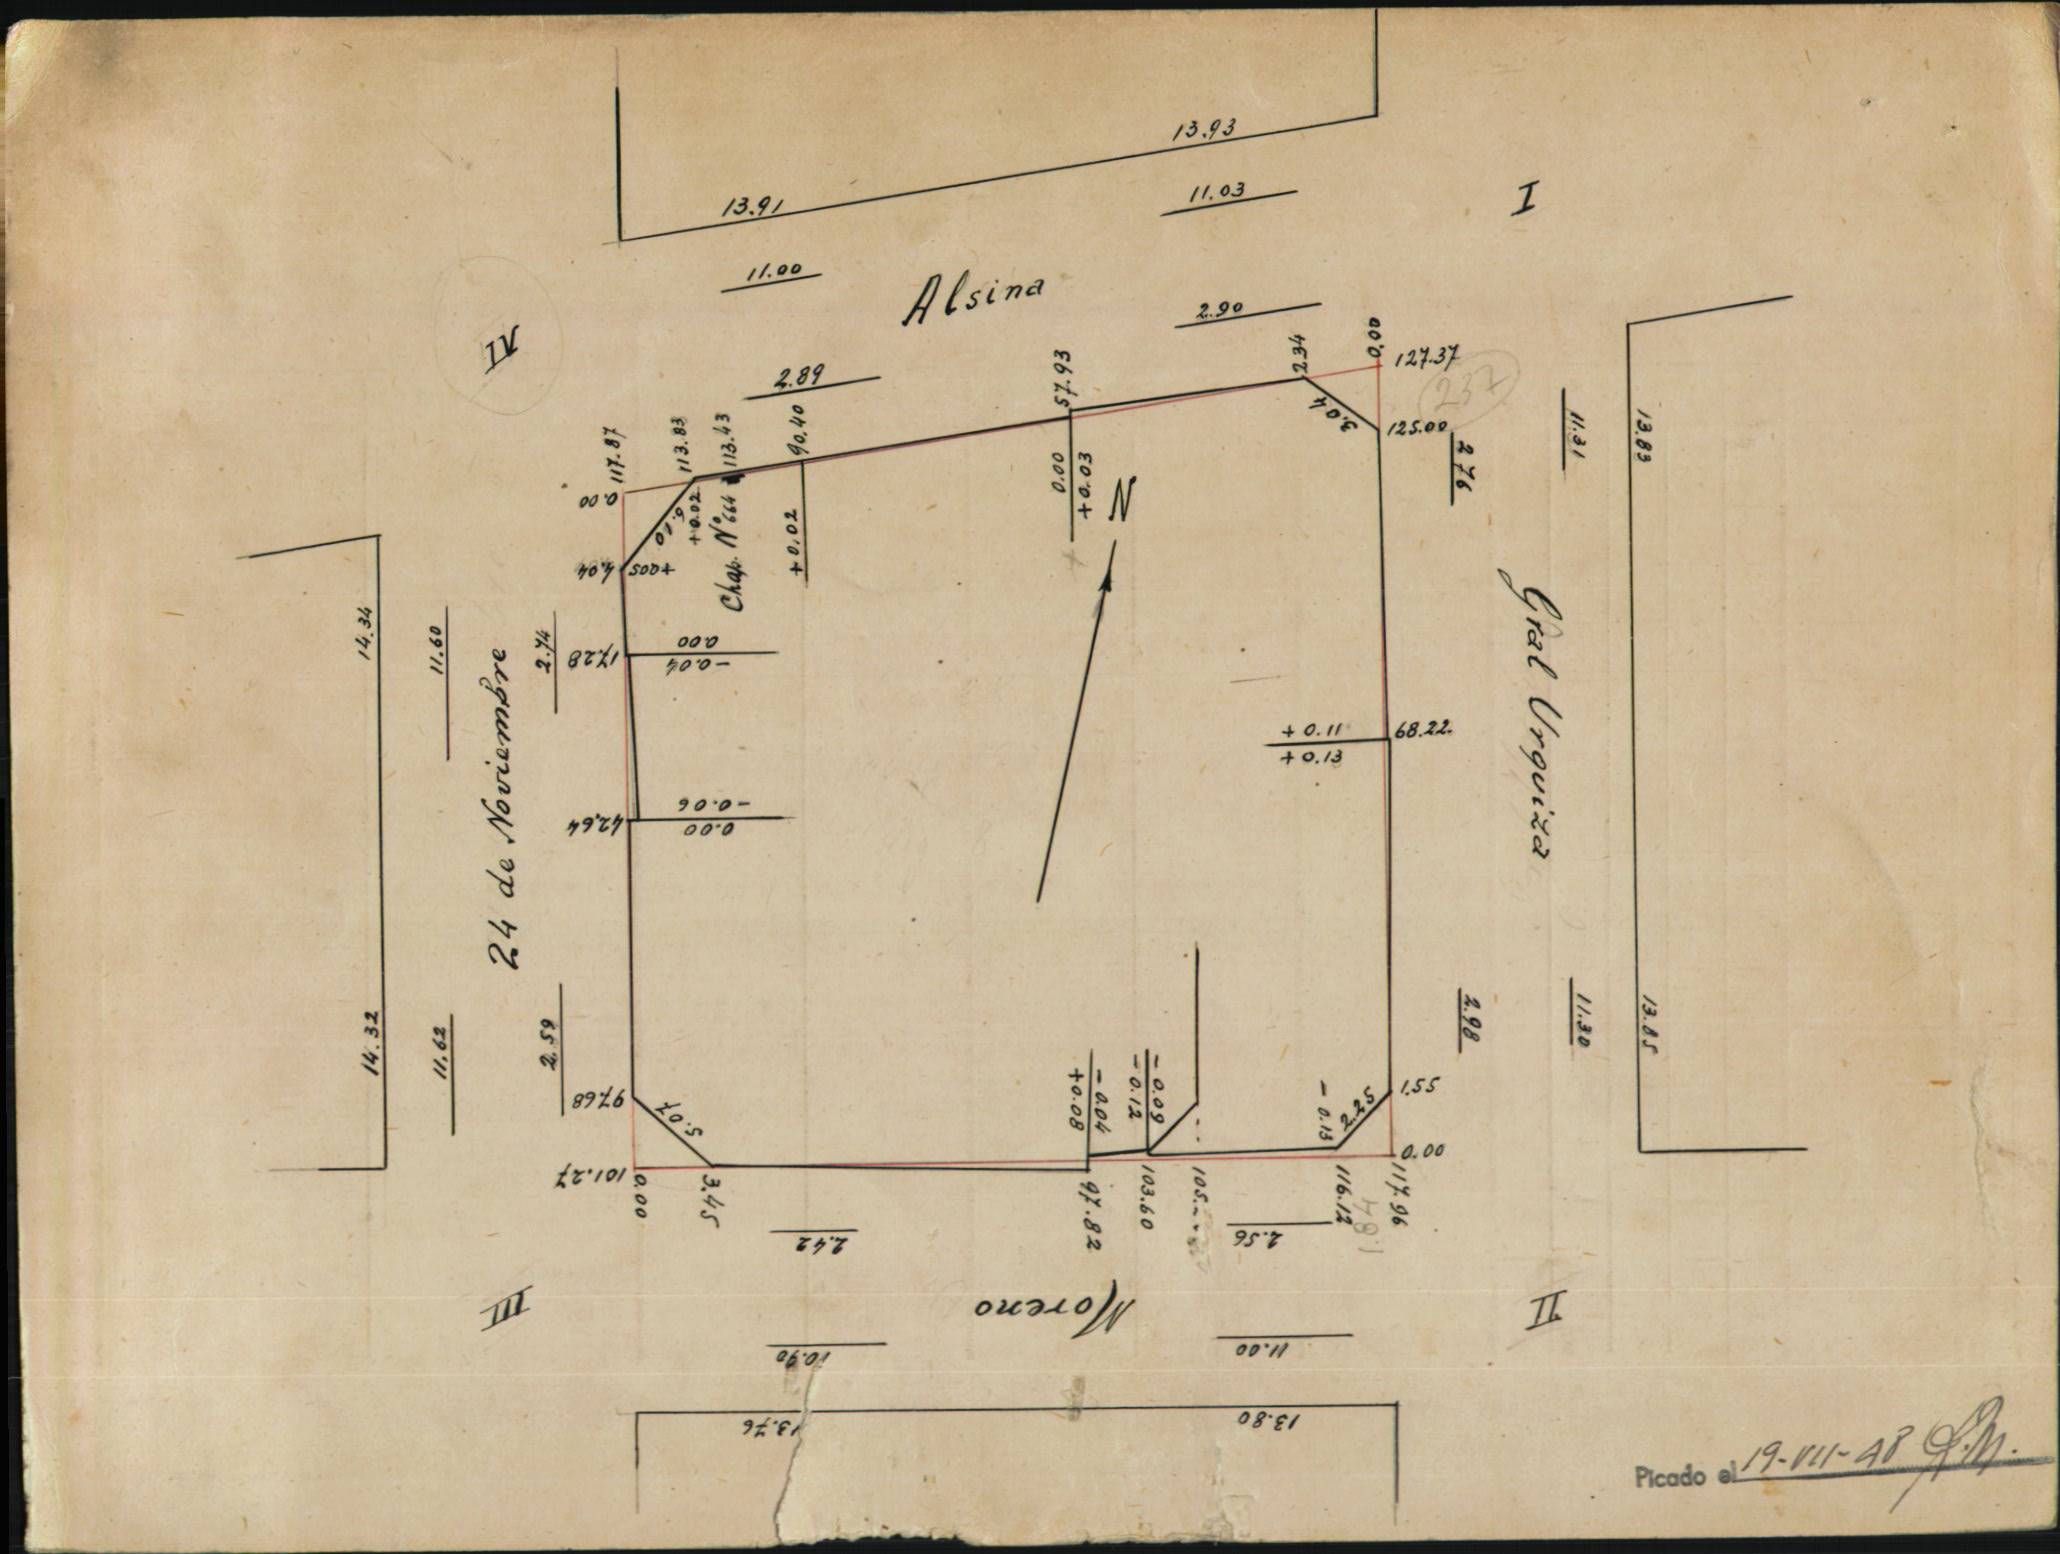 13.93
13.91
11.03
I
11.00
Alsina
2.90
IV
2.89
57.93
2.34
0.00
127.37
237
3.04
125.00
117.87
113.83
113.43
90.40
0.00
6.10
+0.02
Chap. Nº 664
+0.02
0.00
+0.03
N
4.04
+0.05
2.76
11.31
13.83
14.34
11.60
2.74
24 de Noviembre
17.28
0.00
-0.04
Gral Urquiza
+0.11
+0.13
68.22
42.64
-0.06
0.00
14.32
11.62
2.59
97.68
5.07
+0.08
-0.04
-0.12
-0.09
-0.13
2.25
1.55
2.98
11.30
13.85
101.27
0.00
3.45
97.82
103.60
105.
116.12
117.96
0.00
1.84
2.42
2.56
III
Moreno
II
10.90
11.00
13.76
13.80
Picado el 19-VII-48